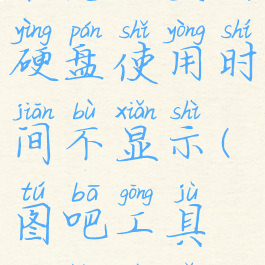 yìng pán shǐ yòng shí
硬盘使用时
jiān bù xiǎn shì
间不显示(
tú bā gōng jù
图吧工具